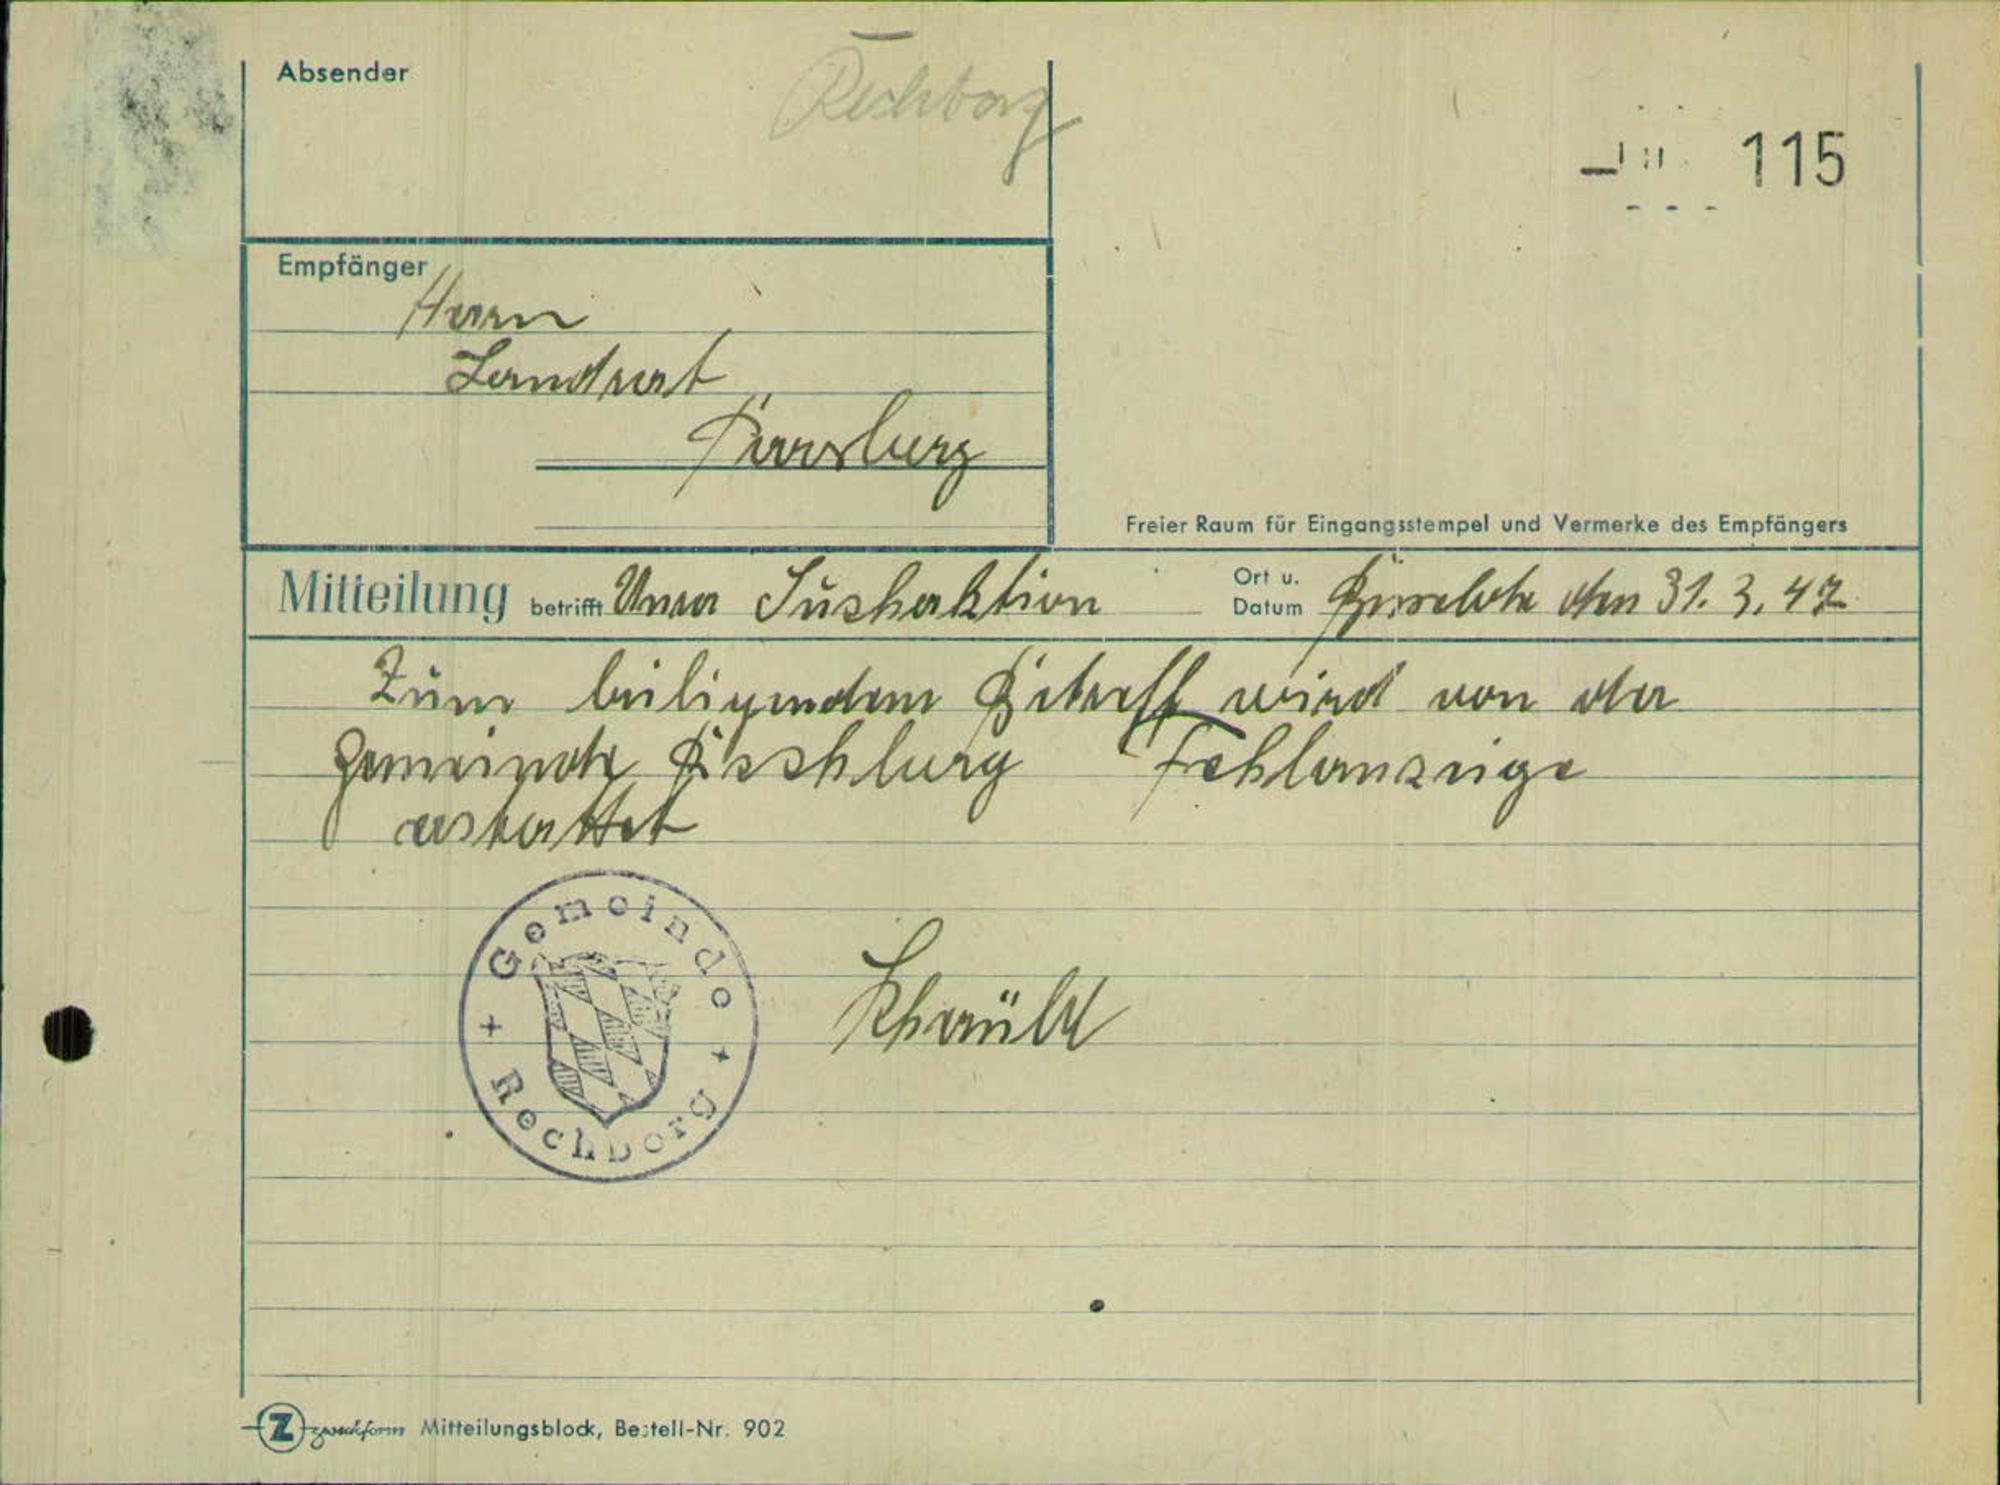 Absender
Rechberg
115
Empfänger
Herrn
Landrat
Parsberg
Freier Raum für Eingangsstempel und Vermerke des Empfängers
Mitteilung betrifft Unra Suchaktion
Ort u.
Datum den 31.3.47
Zum beiligendem Betreff wird von der
Gemeinde Fehlanzeige
erstattet
Gemeinde
Rechberg
Z zweckform Mitteilungsblock, Bestell-Nr. 902